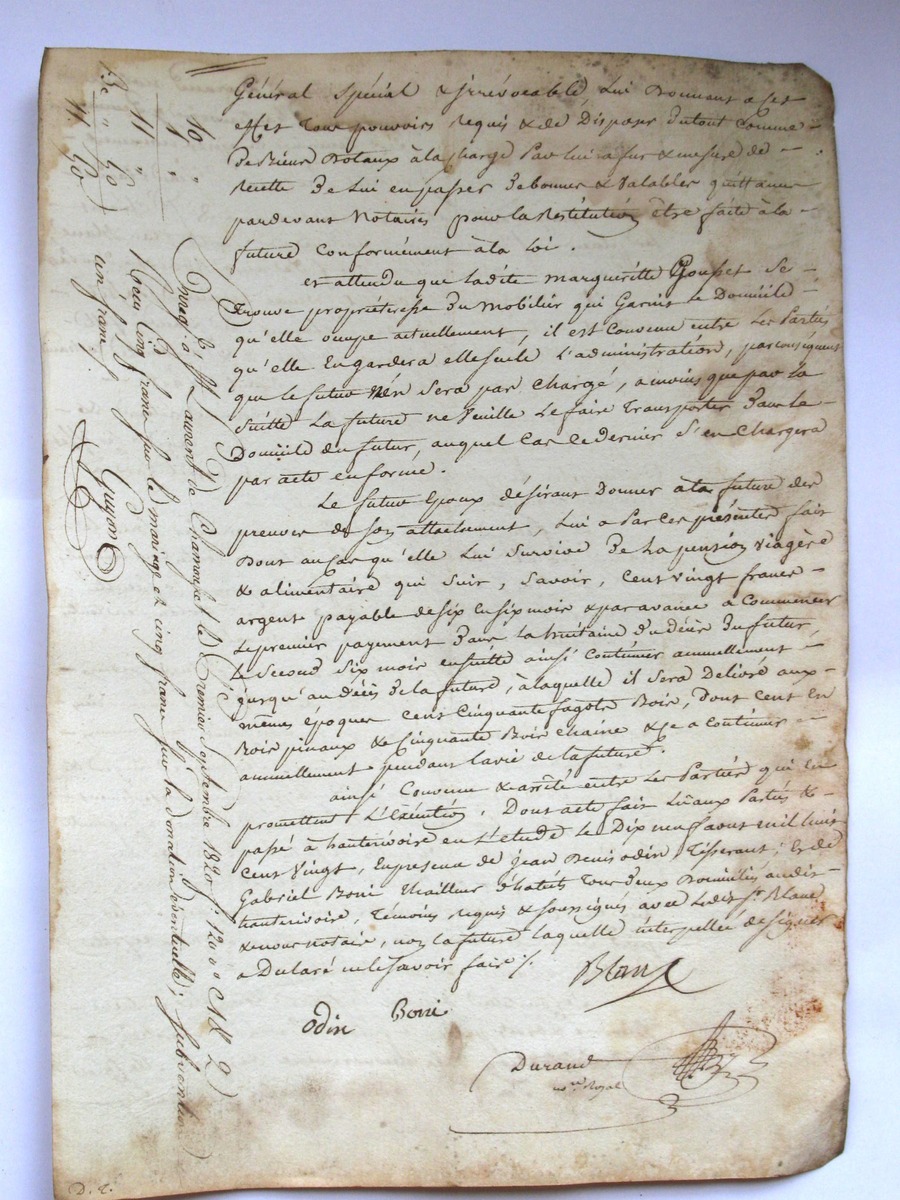 Général spécial & irrévocable, lui donnant a cet
effet tous pouvoirs requis & de disposer du tout comme
de biens dotaux à la charge par lui a fur & mesure de
recette de lui en passer de bonnes & valables quittances
pardevant notaires pour la restitution être faite à la
future conformément à la loi.
et attendu que ladite margueritte Gousset se
trouve propriétresse du mobilier qui garnit le domicile
qu'elle occupe actuellement, il est convenu entre les parties
qu'elle en gardera elle seule l'administration, par conséquent
que le futur n'en sera pas chargé, a moins que par la
suitte la future ne veuille le faire transporter dans le
domicile du futur, auquel cas ce dernier s'en chargera
par acte en forme.
Le futur époux désirant donner a la future des
preuves de son attachement, lui a par ces présentes fait
don au cas qu'elle lui survive de la pension viagère
& alimentaire qui suit, savoir, cent vingt francs
argent payable de six en six mois & par avance a commencer
le premier payement dans la huitaine du décès du futur,
le second six mois ensuitte ainsi continuer annuellement
jusqu'au décès de la future, à laquelle il sera délivré aux
mêmes époques cent cinquante fagots bois, dont cent en
bois pinaux & cinquante bois chaine & ce a continuer
annuellement pendant la vie de la future.
ainsi convenu & arrêté entre les parties qui en
promettent l'exécution. Dont acte fait lu aux parties &
passé à hauterivoire en l'étude le dix neuf aoust mil huit
cent vingt, en presence de jean denis odin, tisserant, & de
Gabriel Boni tailleur d'habits tous deux domiciliés audit
hauterivoire, témoins requis & soussignés avec ledit Sr Blanc
& nous notaire, non la future laquelle interpellée de signer
a déclaré ne le savoir faire /.
Blanc
odin Boni
Durand
nre Royal
10 "
1 "
11 "
1.10
Enreg. à St Laurent de Chamousset le premier septembre 1820 f° 120
Reçu cinq francs sur le mariage et cinq francs sur la donation éventuelle; subvention
un franc
Guyon
D. E.